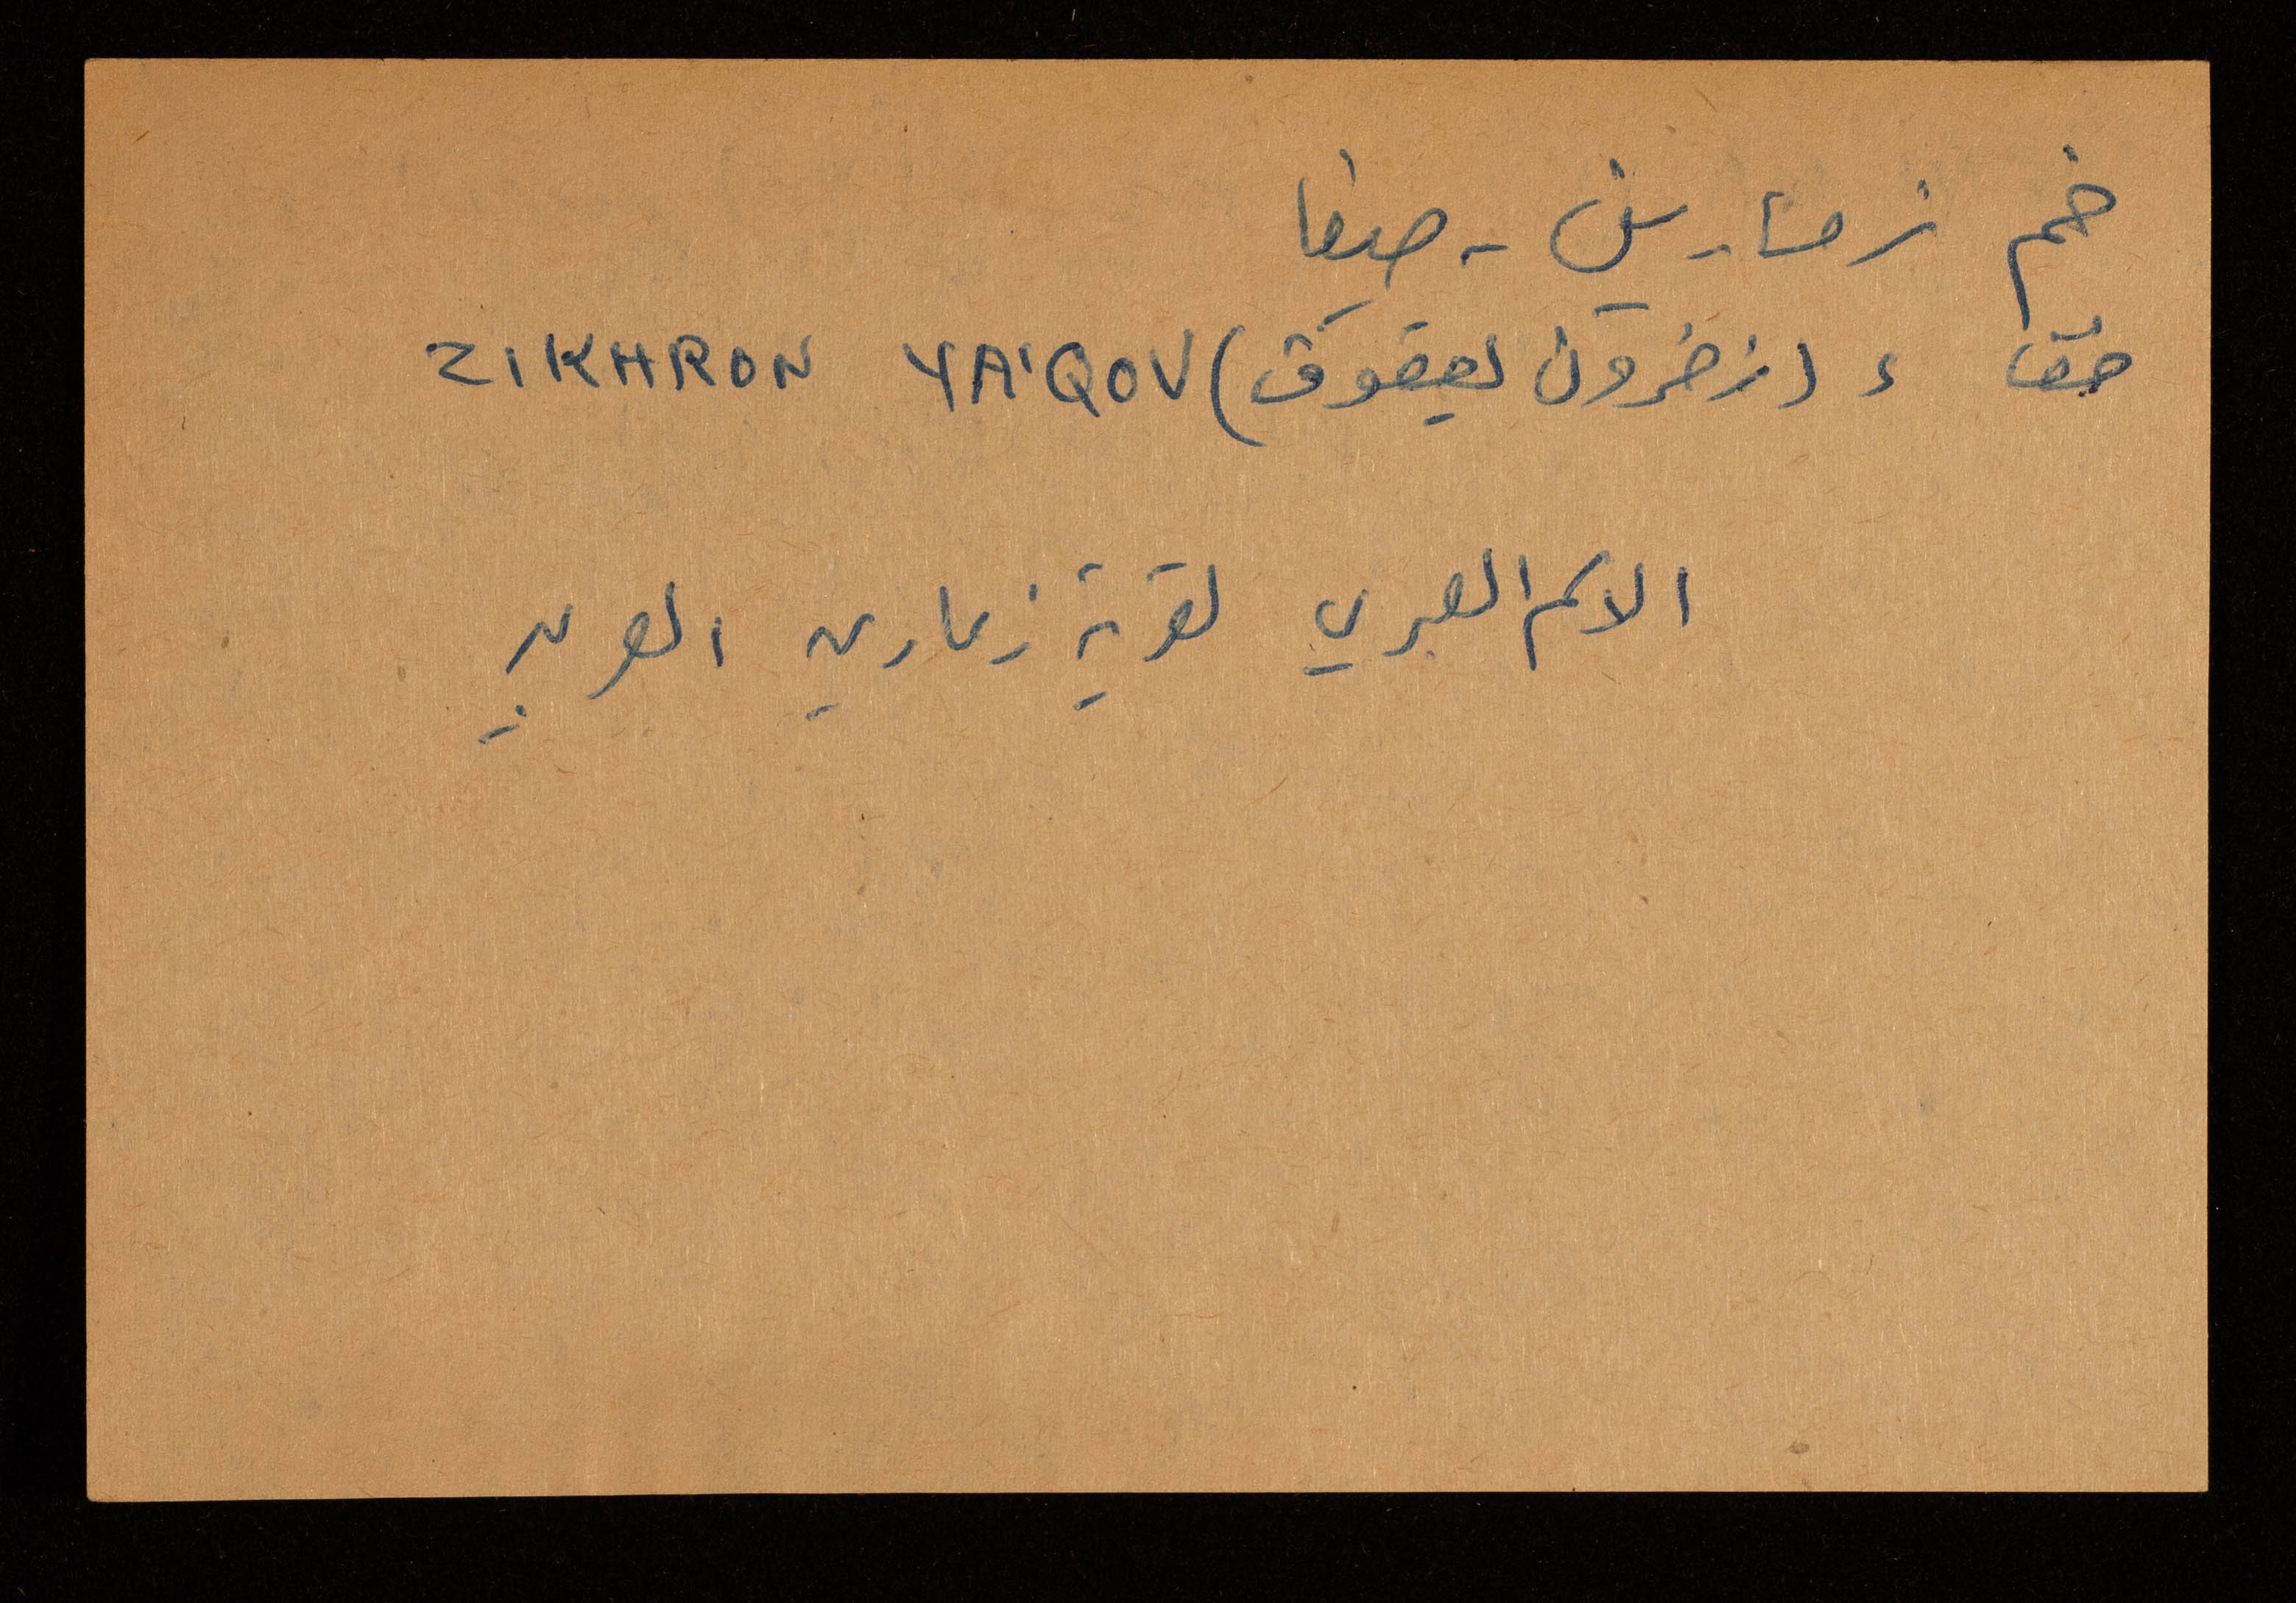 ختم زمارين - حيفا
حيفا ، (زخرون يعقوف) ZIKHRON YA'QOV
الاسم العبري لقرية زمارين العربية